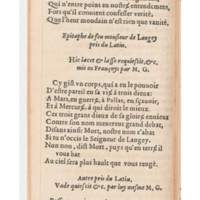 Qui n'entre point en nostre entendement,
Fors qu'il convient confesser verité,
Que l'heur mondain n'est rien que vanité.
Epitaphe de feu monsieur de Langey
pris du Latin.
Hic iacet & lasse requiescit, &c.
mis en Françoys par M. G.
Cy gist un corps, qui a eu le pouvoir
D'estre pareil en sa
A Mars, en guerre, à Pallas, en sçavoir,
Et à Mercure, à qui devoit le mieux.
Ces trois grans dieux de sa gloire envieux
Contre son nom menerent grand debat,
Disans ainsi: Mort, nostre nom s'abat
Si tu n'occis le Seigneur de Langey.
Non, non, dist Mort, puys qu'en terre il
vous bat
Au ciel sera plus hault que vous rengé.
Autre pris du Latin,
Vade quiescit &c. par luy mesme M. G.